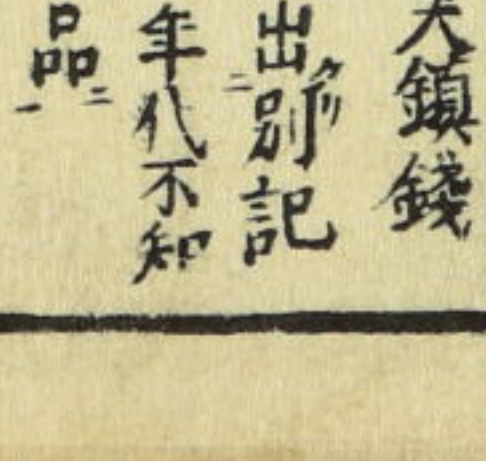 大鎮錢
出二別ケリ記
年代不知
品二一